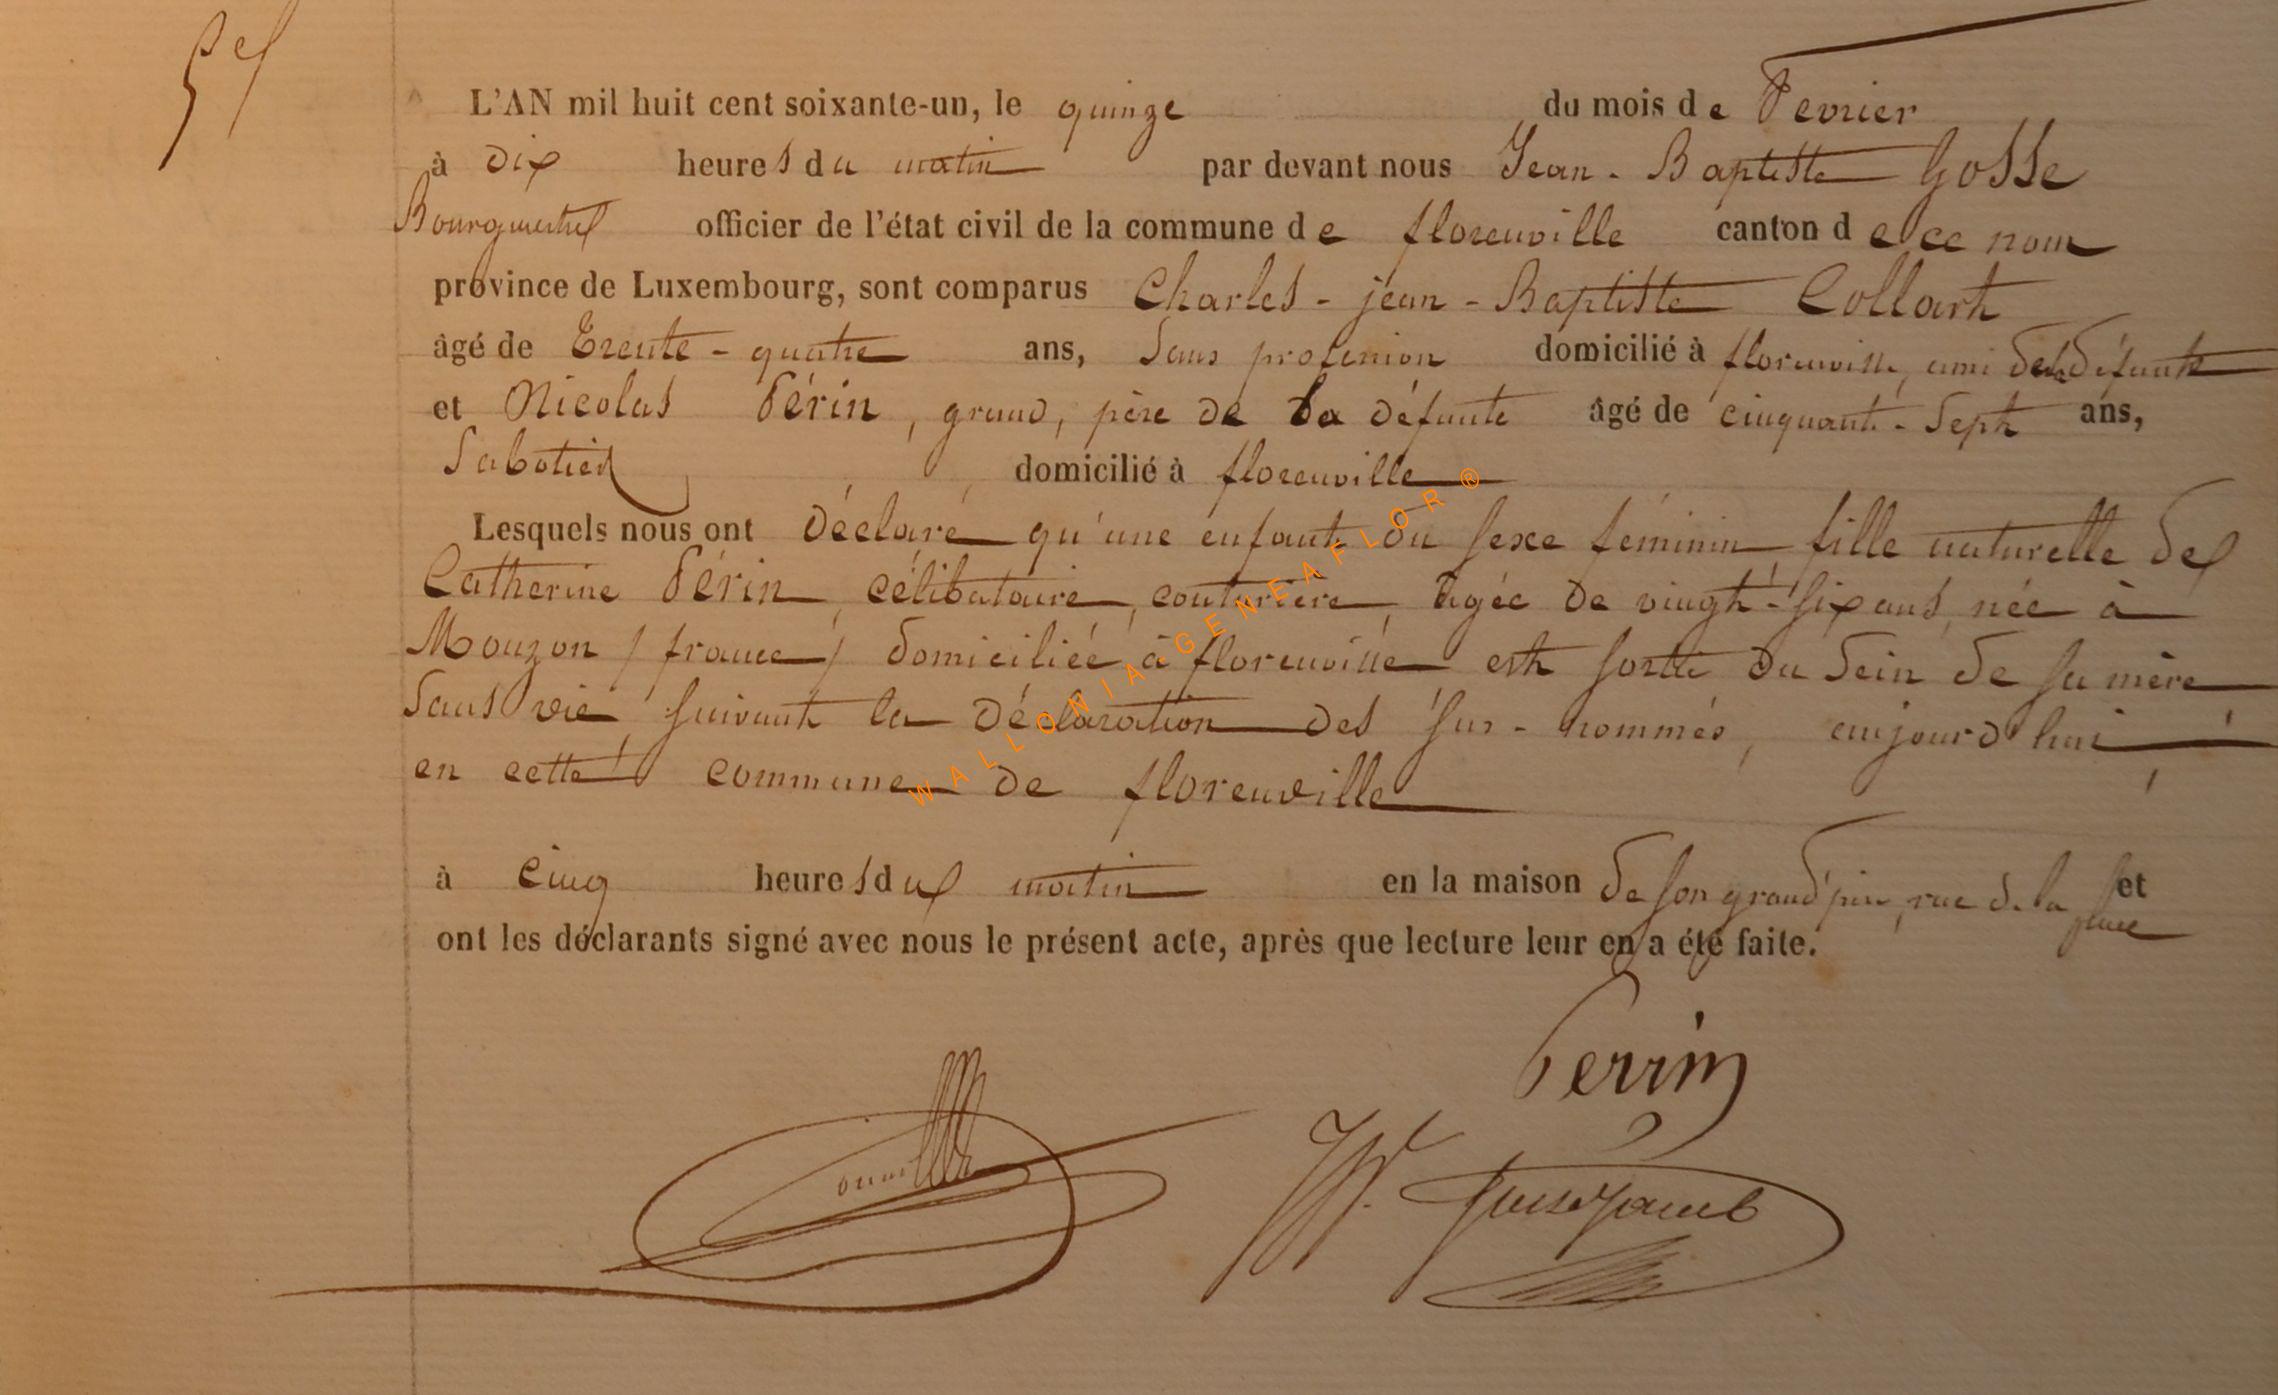 5e
L'AN mil huit cent soixante-un, le quinze du mois de Fevrier
à Dix heures du matin par devant nous Jean-Baptiste Gosse
Bourgmestre officier de l'état civil de la commune de florenville canton de ce nom
province de Luxembourg, sont comparus Charles-jean-Baptiste Collart
âgé de Trente-quatre ans, Sans profession domicilié à florenville, ami de la défunte
et Nicolas Périn, grand, père de la défunte âgé de cinquante-Sept ans,
Sabotier domicilié à florenville
Lesquels nous ont Déclaré qu'une enfant du sexe féminin, fille naturelle de
Catherine Périn, célibataire, couturière, âgée de vingt-six ans, née à
Mouzon / france / domiciliée à florenville est sortie du Sein de sa mère
Sans vie, suivant la Déclaration des sur-nommés, aujourd'hui
en cette commune de florenville
à Cinq heures du matin en la maison de son grand père, rue de la place et
ont les déclarants signé avec nous le présent acte, après que lecture leur en a été faite.
Perrin
WALLONIAGENEAFLOR®